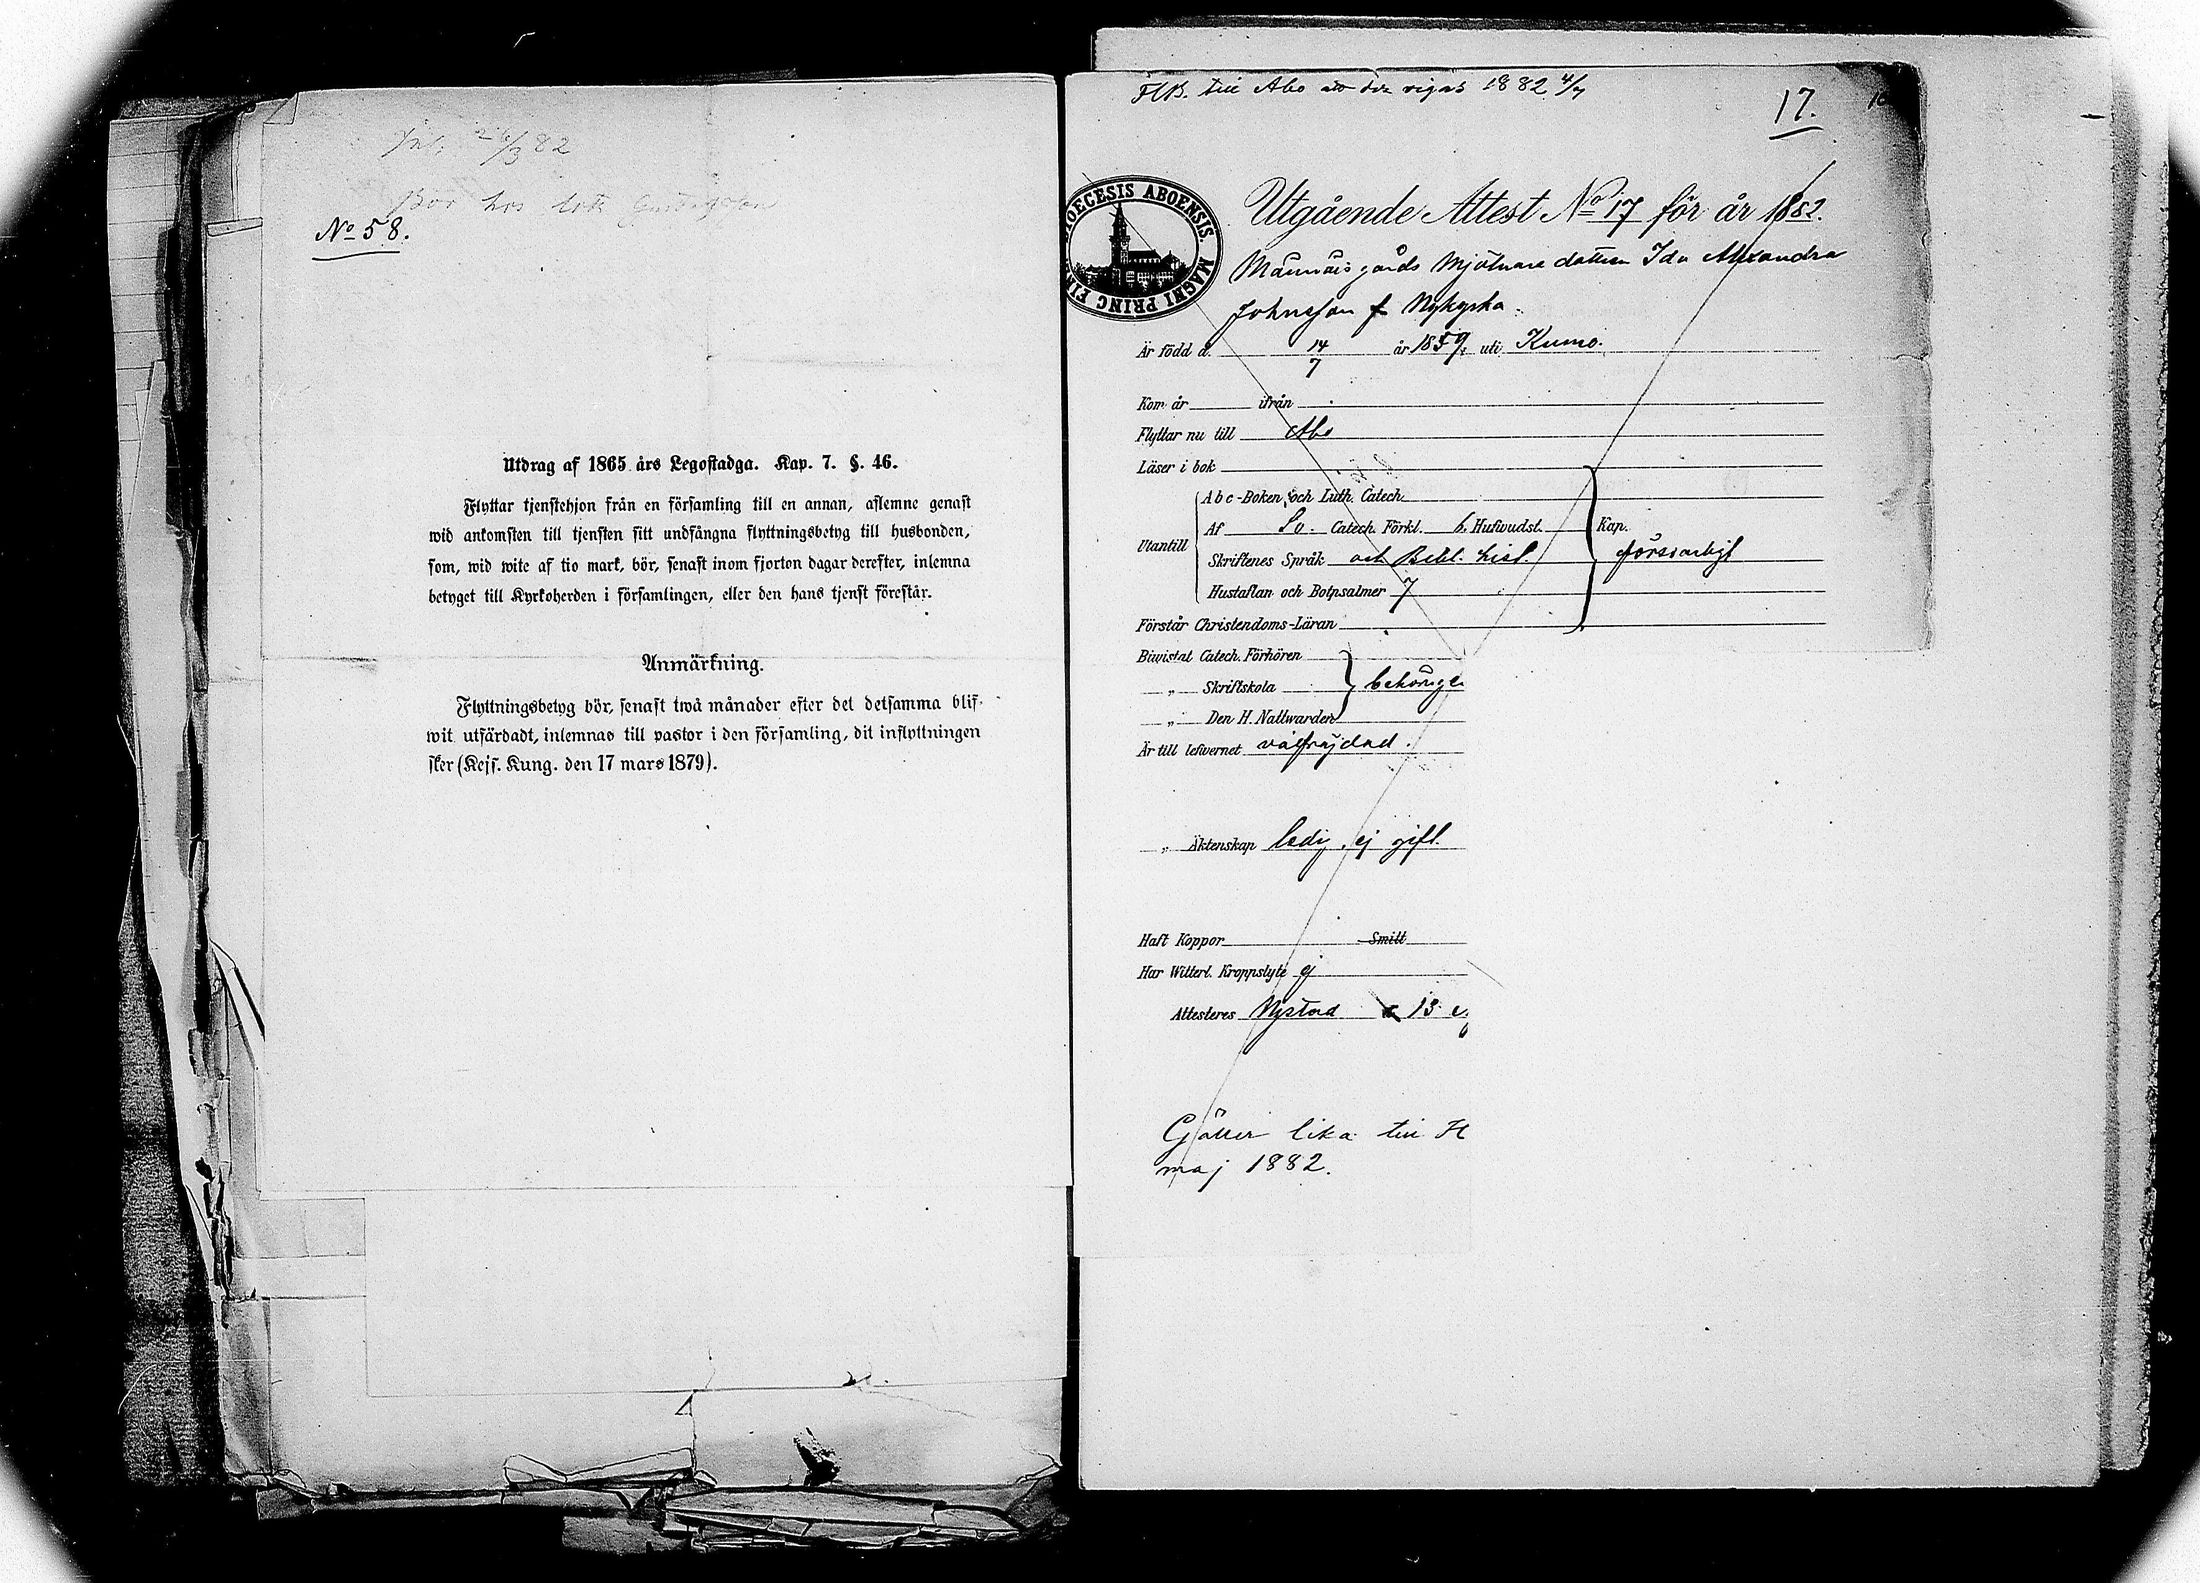 Inl. 26/3 82
Bor hos
No 58.
Utdrag af 1865 års Legostadga. Kap. 7. §. 46.
Flyttar tjenstehjon från en församling till en annan, aflemne genast
wid ankomsten till tjensten sitt undfångna flyttningsbetyg till husbonden,
som, wid wite af tio mark, bör, senast inom fjorton dagar derefter, inlemna
betyget till Kyrkoherden i församlingen, eller den hans tjenst förestår.
Anmärkning.
Flyttningsbetyg bör, senast twå månader efter det detsamma blif-
wit utfärdadt, inlemnas till pastor i den församling, dit inflyttningen
sker (Kejs. Kung. den 17 mars 1879).
till Åbo 1882 4/7
17.
16
DIOECESIS ABOENSIS. MAGNI PRINC FIN
Utgående Attest No 17 för år 1882.
gårds Mjölnare dottren Ida Alexandra
Johnsson f Nykyrka.
Är född d. 14/7 år 1859, uti Kumo.
Kom år ifrån
Flyttar nu till Åbo
Läser i bok
Abc-Boken och Luth. Catech.
Utantill
Af Sv. Catech. Förkl. 6. Hufwudst. Kap.
Skriftenes Språk och Bibl. hist. försvarligt
Hustaflan och Botpsalmer 7
Förstår Christendoms-Läran
Biwistat Catech. Förhören
„ Skriftskola behörige
„ Den H. Nattwarden
Är till lefwernet välfräjdad.
„ Äktenskap ledig, ej gift.
Haft Koppor Smitt
Har Witterl. Kroppslyte ej
Attesteres Nystad 13
Gäller lika till
maj 1882.